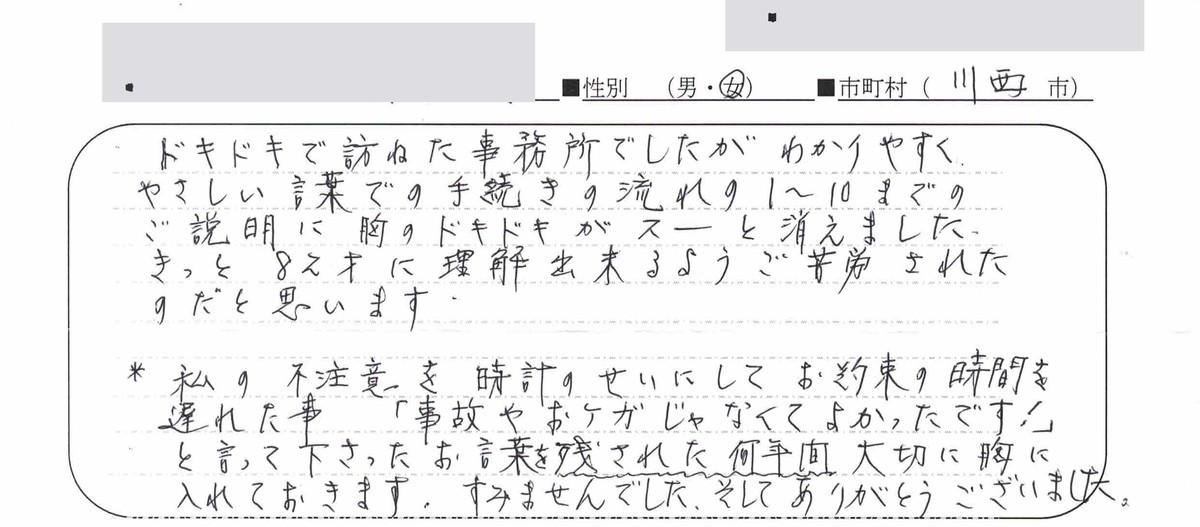 ■性別 （男・女） ■市町村（ 川西 市）
ドキドキで訪ねた事務所でしたが わかりやすく
やさしい言葉での手続きの流れの1～10までの
ご説明に胸のドキドキがスーと消えました.
きっと 82才に理解出来るようご苦労された
のだと思います.
* 私の不注意を時計のせいにしてお約束の時間を
遅れた事 「事故やおケガじゃなくてよかったです！」
と言って下さったお言葉を残された何年間 大切に胸に
入れておきます. すみませんでした.そしてありがとうございました。